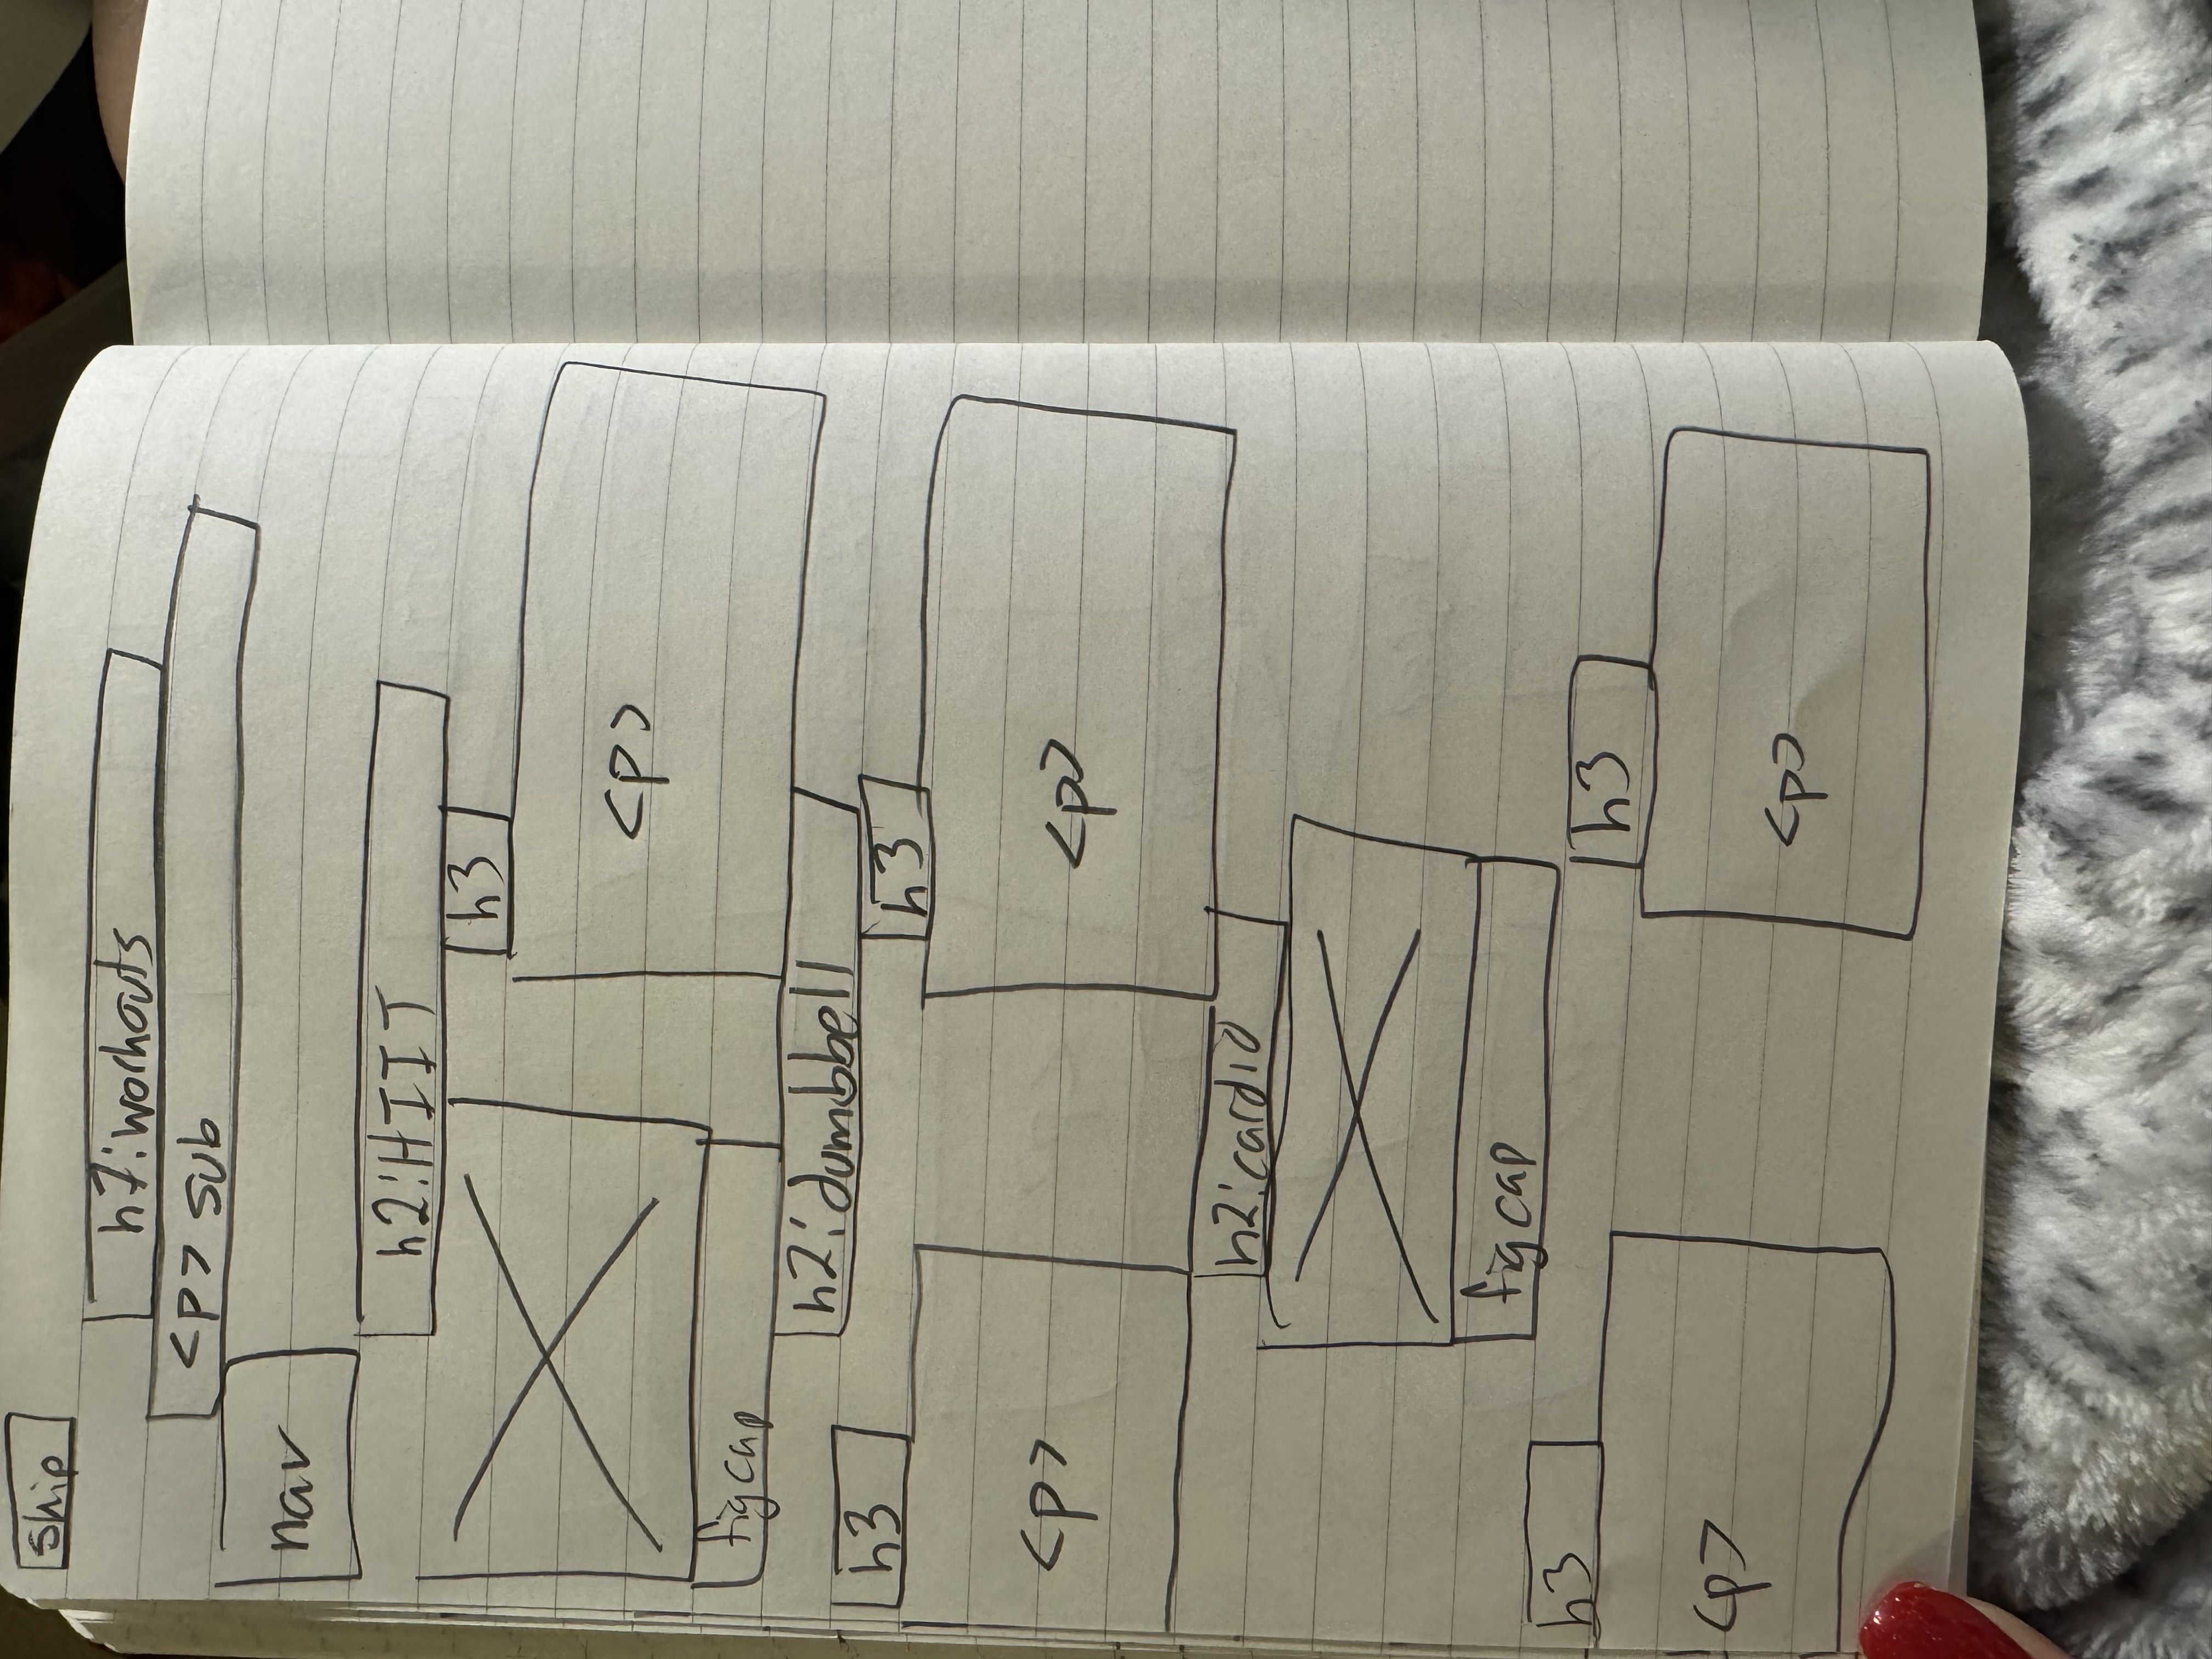 skip
h1: workouts
<p> sub
nav
h2: HIIT
h3
<p>
figcap
h2: dumbbell
h3
h3
<p>
<p>
h2: cardio
figcap
h3
h3
<p>
<p>